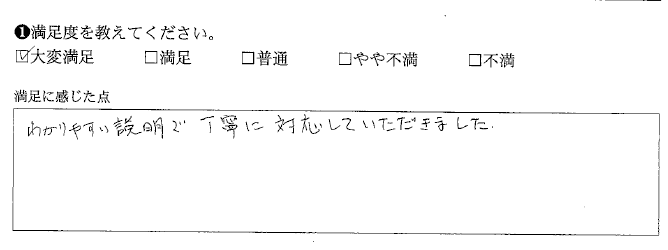 ❶満足度を教えてください。
☑大変満足 □満足 □普通 □やや不満 □不満
満足に感じた点
わかりやすい説明で 丁寧に 対応していただきました.